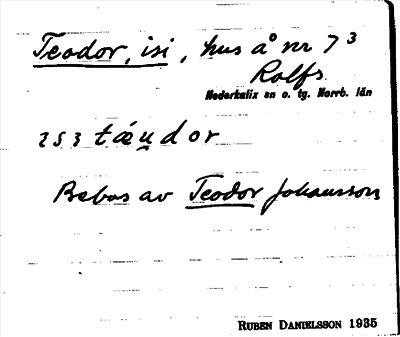 Teodor, isi, hus å nr 7³
Rolfs
Nederkalix sn o. tg. Norrb. län
tǽṷdor
Bebos av Teodor Johansson
RUBEN DANIELSSON 1935